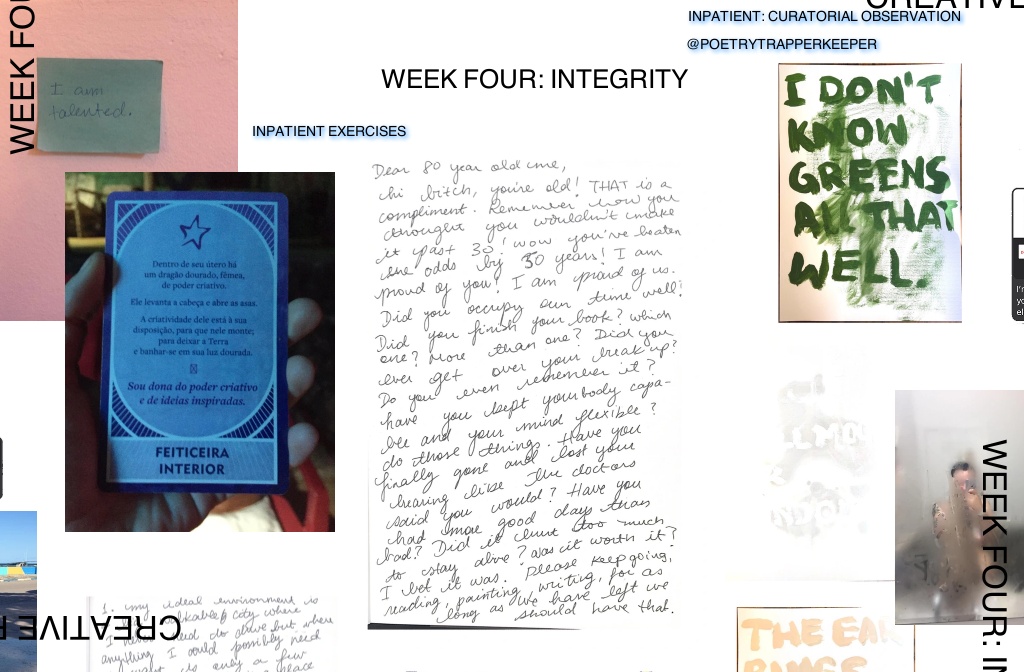 CREATIVE
WEEK FOU
INPATIENT: CURATORIAL OBSERVATION
@POETRYTRAPPERKEEPER
WEEK FOUR: INTEGRITY
INPATIENT EXERCISES
I am
talented.
Dentro de seu útero há
um dragão dourado, fêmea,
de poder criativo.
Ele levanta a cabeça e abre as asas.
A criatividade dele está à sua
disposição, para que nele monte;
para deixar a Terra
e banhar-se em sua luz dourada.
Sou dona do poder criativo
e de ideias inspiradas.
FEITICEIRA
INTERIOR
Dear 80 year old me,
hi bitch, you're old! THAT is a
compliment. Remember how you
thought you wouldn't make
it past 30! wow you've beaten
the odds by 50 years! I am
proud of you! I am proud of us.
Did you occupy our time well?
Did you finish your book? which
one? More than one? Did you
ever get over your breakup?
Do you even remember it?
have you kept your body capa-
ble and your mind flexible?
do those things. Have you
finally gone and lost your
hearing like the doctors
said you would? Have you
had more good days than
bad? Did it hurt too much
to stay alive? was it worth it?
I bet it was. Please keep going,
reading, painting, writing, for as
long as we have left we
should have that.
I DON'T
KNOW
GREENS
ALL THAT
WELL.
1. my ideal environment is
walkable city where
I never need to drive but where
anything I could possibly need
is only a few
CREATIVE
THE EAR
WEEK FOUR: IN